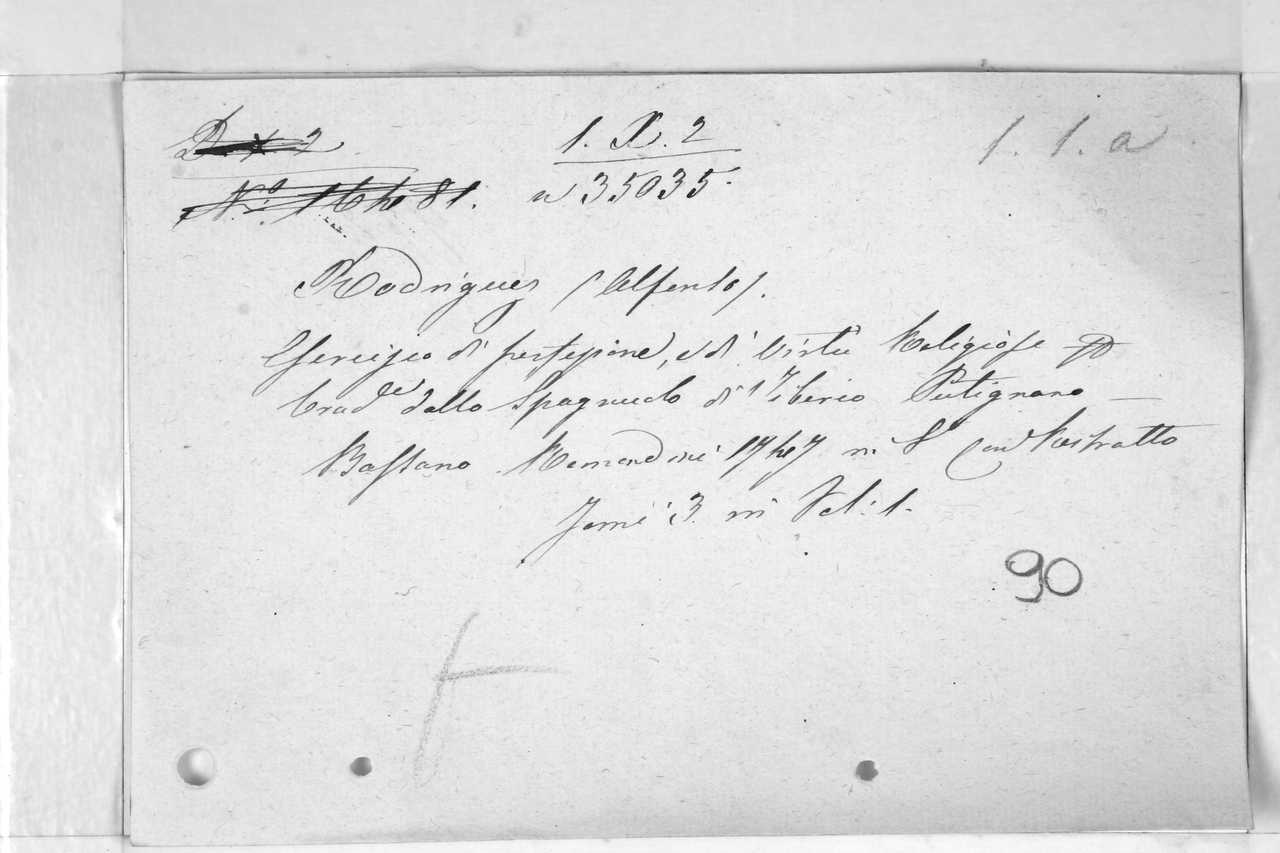 1. X. 2
1. 1. a
n 35035.
Rodrigues (Alfonso).
Esercizio di perfezione, e di Virtù Religiose
trad.e dallo Spagnuolo di Tiberio Putignano —
Bassano Remondini in 8° con Ritratto
Tomi 3. in Vol: 1.
90